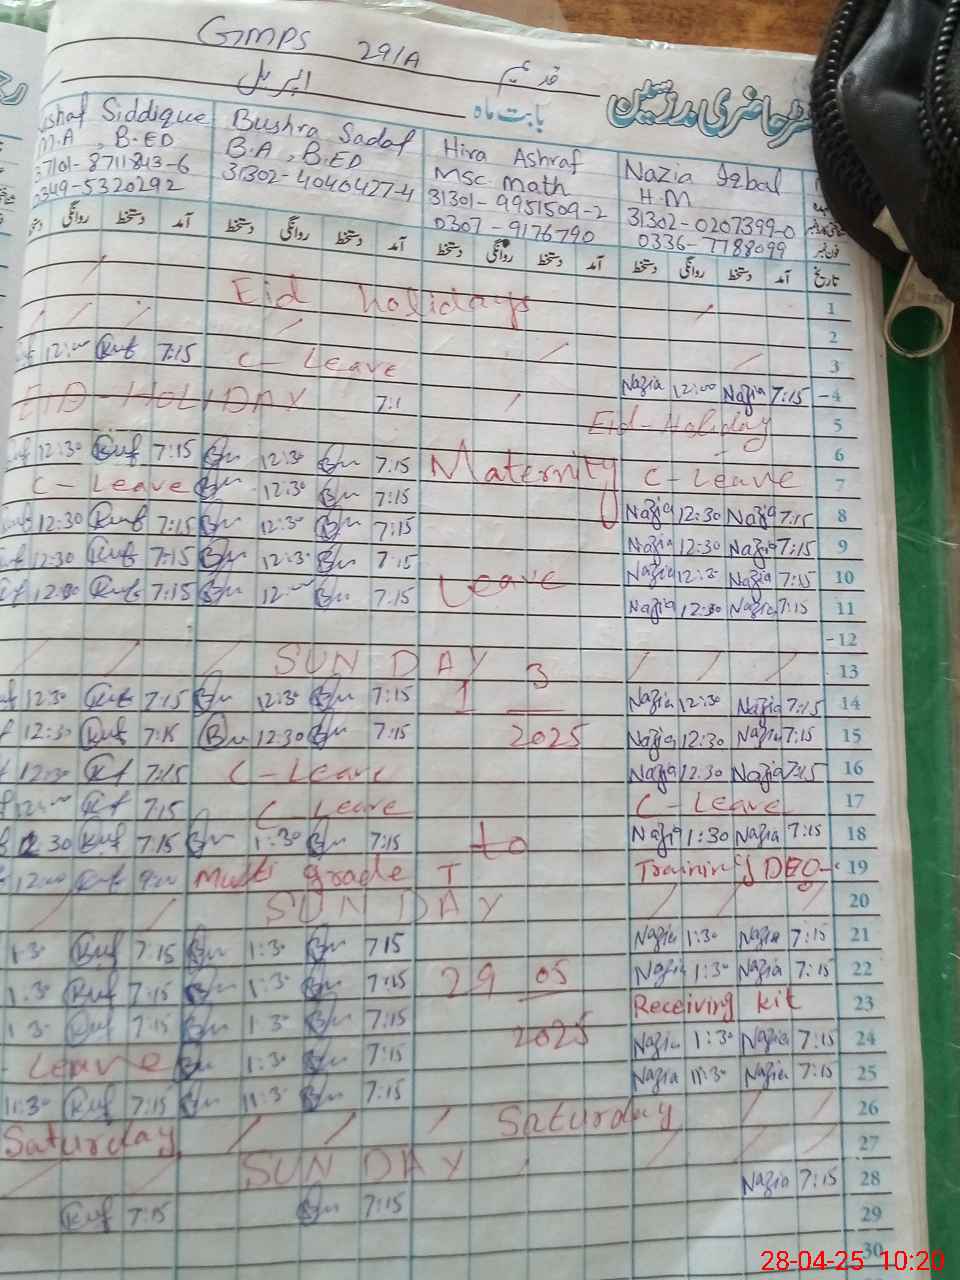 GMPS 291A
اپریل
بابت ماہ
رجسٹر حاضری مدرسین
Siddique
M.A , B.ED
37101-8711843-6
0349-5320292
Bushra Sadaf
B.A , B.ED
31302-4040427-4
Hira Ashraf
MSC Math
31301-9951509-2
0307-9176790
Nazia Iqbal
H.M
31302-0207399-0
0336-7788099
روانگی دستخط آمد دستخط روانگی دستخط آمد دستخط روانگی دستخط آمد دستخط روانگی دستخط آمد تاریخ
Eid Holidays 1
2
12:00 7:15 C - Leave 3
EID - HOLIDAY 7:1 Nazia 12:00 Nazia 7:15 4
Eid - Holiday 5
12:30 7:15 12:30 7:15 Maternity 6
C - Leave 12:30 7:15 C - Leave 7
12:30 7:15 12:30 7:15 Nazia 12:30 Nazia 7:15 8
12:30 7:15 12:30 7:15 Nazia 12:30 Nazia 7:15 9
12:00 7:15 12:00 7:15 Leave Nazia 12:30 Nazia 7:15 10
Nazia 12:30 Nazia 7:15 11
12
SUNDAY 13
12:30 7:15 12:30 7:15 1 3 Nazia 12:30 Nazia 7:15 14
12:30 7:15 12:30 7:15 2025 Nazia 12:30 Nazia 7:15 15
12:30 7:15 C - Leave Nazia 12:30 Nazia 7:15 16
7:15 C Leave C - Leave 17
30 7:15 1:30 7:15 to Nazia 1:30 Nazia 7:15 18
12:00 9:00 Multi grade T Training DEO 19
SUNDAY 20
1:30 7:15 1:30 7:15 Nazia 1:30 Nazia 7:15 21
1:30 7:15 1:30 7:15 29 05 Nazia 1:30 Nazia 7:15 22
1:30 7:15 1:30 7:15 2025 Receiving Kit 23
Leave 1:30 7:15 Nazia 1:30 Nazia 7:15 24
11:30 7:15 11:30 7:15 Nazia 11:30 Nazia 7:15 25
Saturday Saturday 26
SUNDAY 27
7:15 7:15 Nazia 7:15 28
29
30
28-04-25 10:20